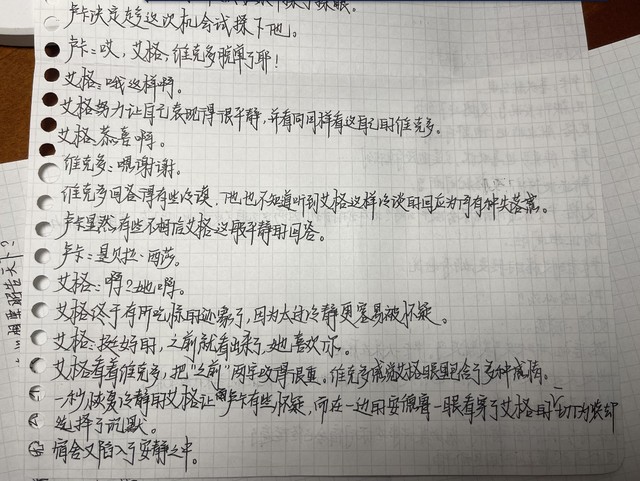 卢卡决定趁这次机会试探下他。
卢卡：哎，艾格，维克多脱单了耶！
艾格：哦这样啊。
艾格努力让自己表现得很平静，并看向同样看这自己的维克多。
艾格：恭喜啊。
维克多：嗯谢谢。
维克多回答得有些冷漠，他也不知道听到艾格这样冷淡的回应为何有种失落感。
卢卡显然有些不相信艾格这般平静的回答。
卢卡：是贝拉·西莎。
艾格：啊？她啊。
艾格终于有所吃惊的迹象了，因为太过冷静更容易被怀疑。
艾格：挺好的，之前就看出来了，她喜欢你。
艾格看着维克多，把“之前”两字咬得很重。维克多感觉艾格眼里包含了多种感情。
一秒恢复冷静的艾格让卢卡有些怀疑，而在一边的安佩霄一眼看穿了艾格的行为表却
选择了沉默。
宿舍又陷入了安静之中。
昭告天下？